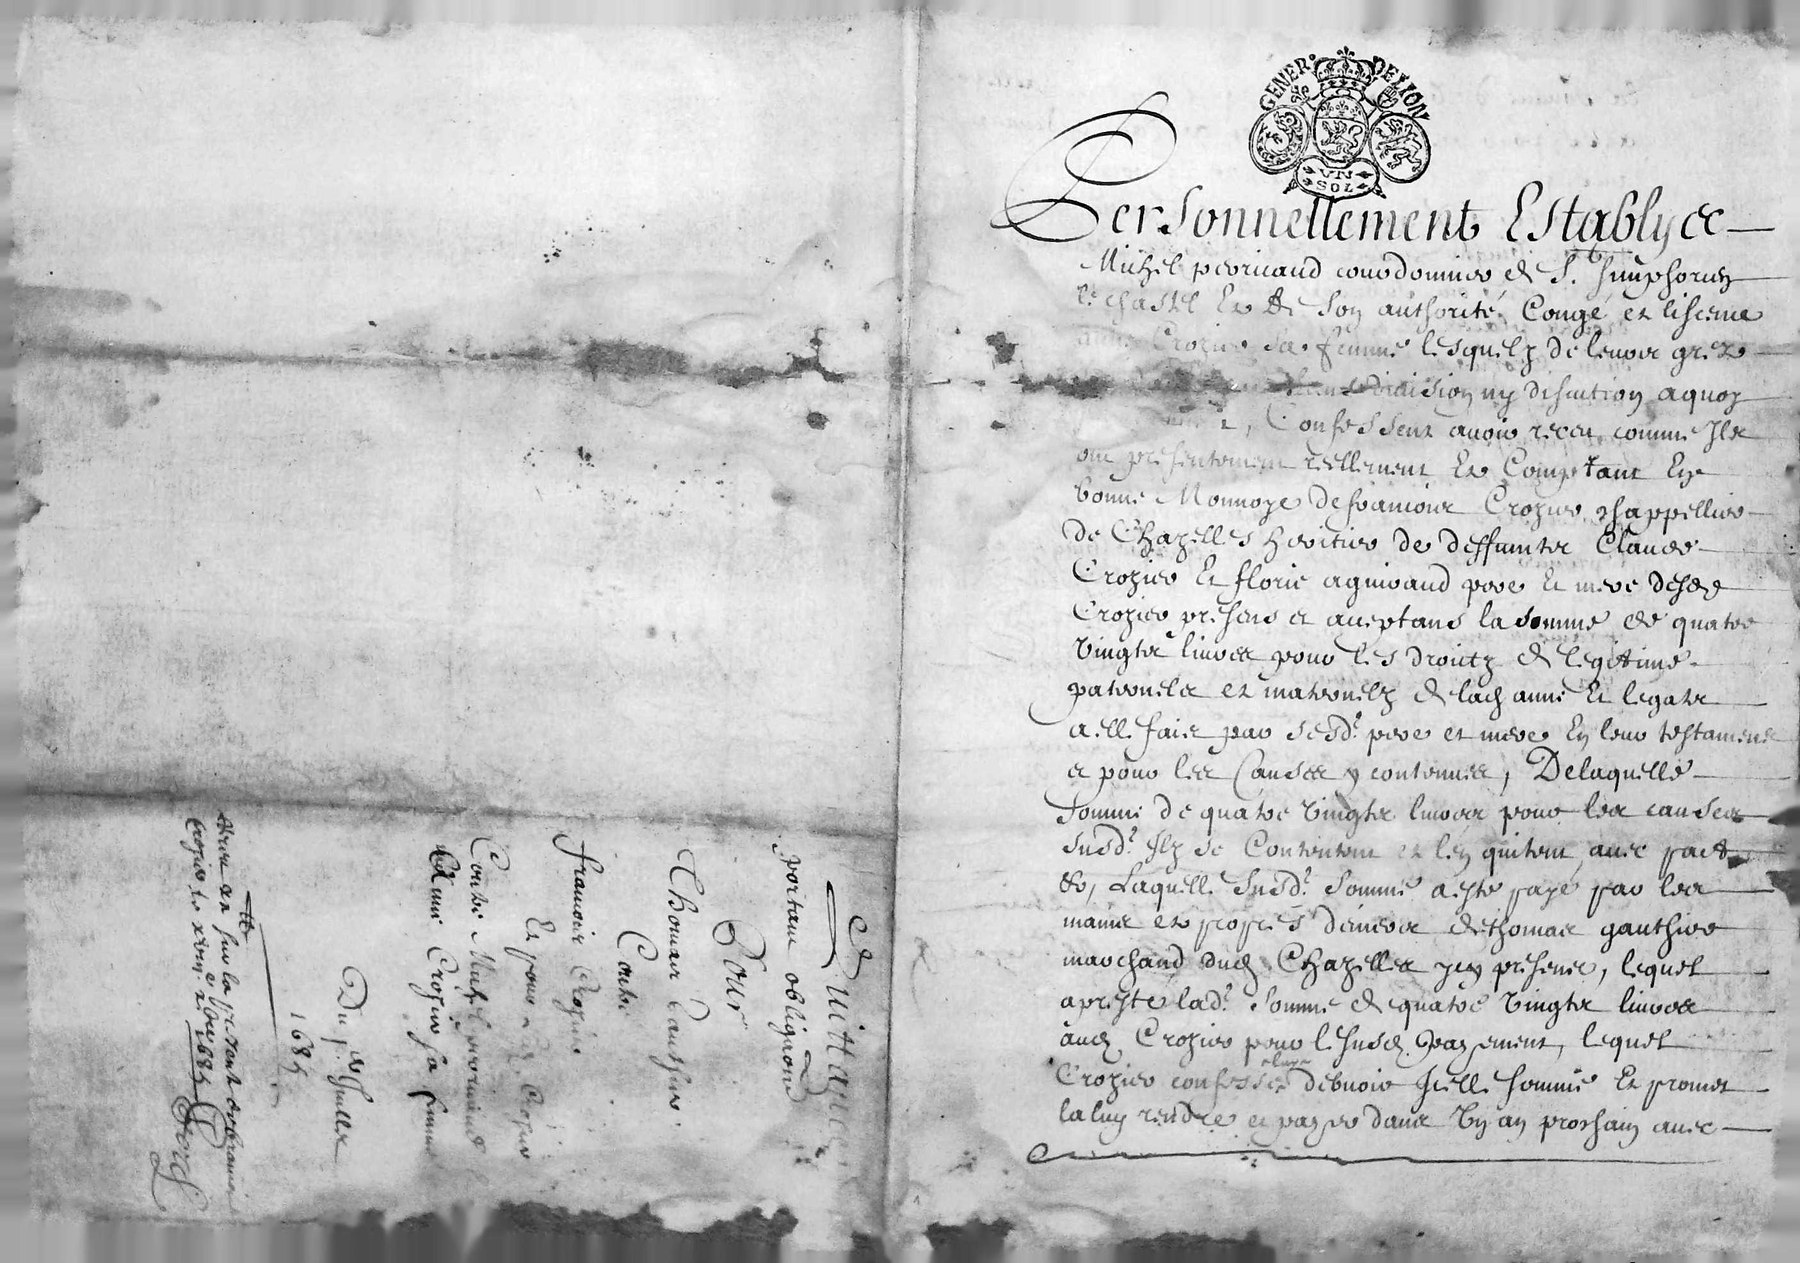 GENER· DE LYON
VN
SOL
Personnellement Establyee
Michel perricaud cordonnier de St. Simphorien
le chastel Et de son authorité, Congé et liscence
anne Crozier sa femme lesquelz de leurs grez
sans division ny discution a quoy
Confessent avoir receu comme Ils
ont presentement reellement Et Comptant En
bonne Monnoye de francois Crozier chappellier
de Chazelles heritier de deffuncts Claude
Crozier Et florie aguiraud pere Et mere desd
Crozier presens et aceptans la somme de quatre
Vingts livres pour les droictz de legitime
paternels et maternelz de lad anne Et legats
a elle faict par sesd. pere et mere En leur testament
et pour les Causes y contenues, De laquelle
somme de quatre Vingts livres pour les causes
susd. Ilz se Contentent et len quitent avec pact
&c, Laquelle susd. somme a esté payé par les
mains et propres deniers de thomas gauthier
marchand dud Chazelles icy present, lequel
a presté lad. somme de quatre Vingts livres
aud Crozier pour le susd. payement, lequel
Crozier confesse debvoir Icelle somme Et promet
la luy rendre et payer dans Un an prochain avec
Quittance
portant obligaon
Pour
Thomas Gauthier
Contre
francois Crozier
Et pour led Crozier
Contre Michel perricaud
Et anne Crozier sa femme
Du pr. Juillet
1685